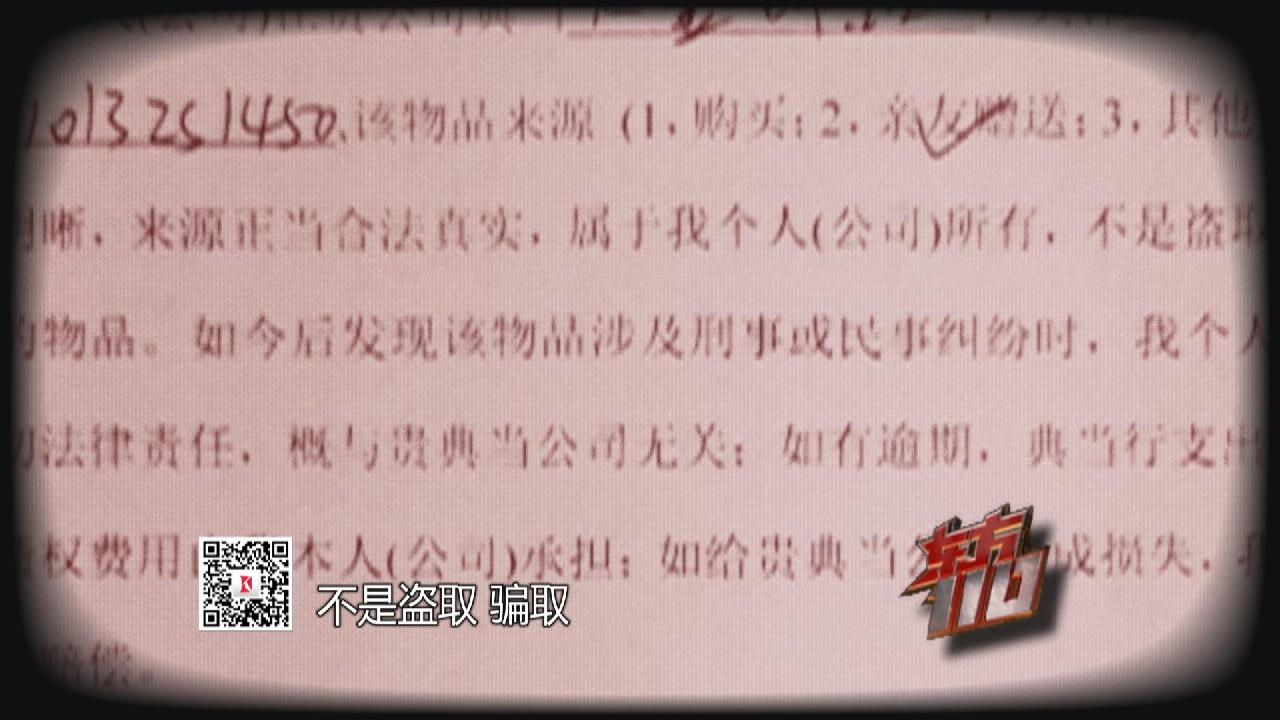 1013251450、该物品来源 (1. 购买; 2. 亲友赠送; 3. 其他
晰. 来源正当合法真实. 属于我个人(公司)所有. 不是盗取
的物品。如今后发现该物品涉及刑事或民事纠纷时. 我个人
法律责任. 概与贵典当公司无关; 如有逾期. 典当行支出
权费用 本人(公司)承担; 如给贵典当公 成损失. 我
赔偿。
不是盗取 骗取
110